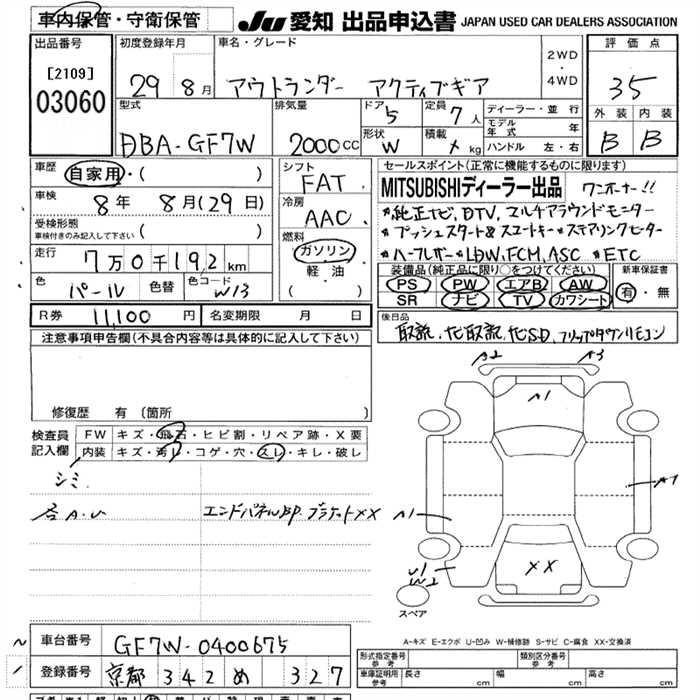 車内保管・守衛保管 JU 愛知 出品申込書 JAPAN USED CAR DEALERS ASSOCIATION
出品番号 [2109] 03060
初度登録年月 29 8月
車名・グレード アウトランダー アクティブギア
2WD ・ 4WD
評価点 35
外装 内装 B B
型式 DBA-GF7W
排気量 2000cc
ドア 5
形状 W
定員 7人
積載 kg
ディーラー・並行
モデル年式 年
ハンドル 左・右
車歴 自家用・( )
車検 8年 8月(29日)
受検形態 車検付きのみ記入して下さい ( )
走行 7万0千192km
色 パール 色替 色コード W13
シフト FAT
冷房 AAC
燃料 ガソリン・軽油・( )
セールスポイント(正常に機能するものに限ります)
MITSUBISHIディーラー出品 ワンオーナー!!
*純正ナビ, DTV, マルチアラウンドモニター
*プッシュスタート&スマートキー *ステアリングヒーター
*ハーフレザー *LDW, FCM, ASC *ETC
装備品(純正品に限り○をつけてください)
PS PW エアB AW
SR ナビ TV カワシート
新車保証書 有・無
R券 11,100円 名変期限 月 日
後日品 取説, ナビ取説, ナビSD, フリップダウンリモコン
注意事項申告欄(不具合内容等は具体的に記入して下さい)
修復歴 有(箇所 )
検査員記入欄
FW キズ・飛石・ヒビ割・リペア跡・X要
内装 キズ・汚レ・コゲ・穴・スレ・キレ・破レ
シミ
各A.U
エンドパネルBP. ブラケットXX
A2 A3
A1
A1 A1
XX
U1 W2
スペア
A-キズ E-エクボ U-凹み W-補修跡 S-サビ C-腐食 XX-交換済
車台番号 GF7W-0400675
登録番号 京都 342 め 327
形式指定番号 参考 類別区分番号 参考
車庫証明用 参考 長さ cm 幅 cm 高さ cm